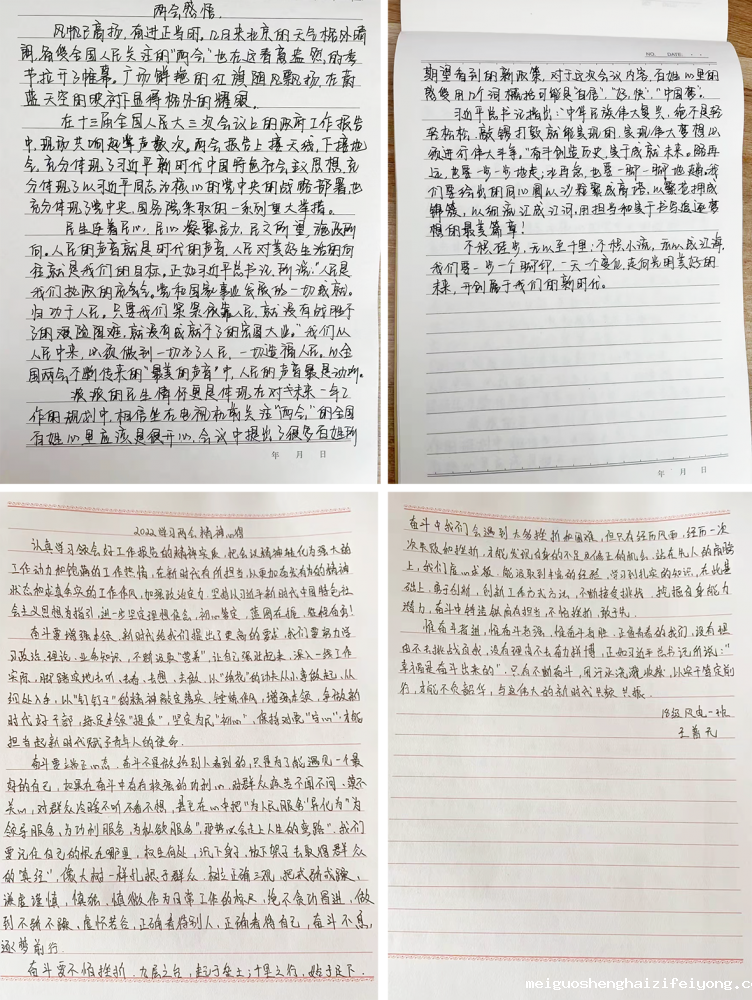 两会感悟.
风帆已高扬,奋进正当时,几日来北京的天气格外晴
朗,备受全国人民关注的"两会"也在这春意盎然的季
节拉开了帷幕。广场鲜艳的红旗随风飘扬,在蔚
蓝天空的映衬下显得格外的耀眼。
在十三届全国人民大三次会议上的政府工作报告
中,现场共响起掌声数次。两会报告上接天线,下接地
气,充分体现了习近平新时代中国特色社会主义思想,充
分体现了以习近平同志为核心的党中央的战略部署,也
充分体现了党中央、国务院采取的一系列重大举措。
民生连着民心,民心凝聚民力,民之所望,施政所
向。人民的声音就是时代的声音,人民对美好生活的向
往就是我们的目标。正如习近平总书记所说:"人民是
我们执政的底气。党和国家事业发展的一切成就,
归功于人民。只要我们紧紧依靠人民,就没有战胜不
了的艰险困难,就没有成就不了的宏图大业。"我们从
人民中来,必须做到一切为了人民,一切造福人民。从全
国两会不断传来的"最美的声音"中,人民的声音最是动听。
浓浓的民生情怀更是体现在对于未来一年工
作的规划中,相信坐在电视机前关注"两会"的全国
百姓心里应该是很开心,会议中提出了很多百姓所
年 月 日
NO. DATE
期望看到的新政策,对于这次会议内容,百姓心里的
感受用几个词概括可能是"自信"、"好,快"、"中国梦"。
习近平总书记指出:"中华民族伟大复兴,绝不是轻
轻松松、敲锣打鼓就能实现的,实现伟大梦想必
须进行伟大斗争。"奋斗创造历史,实干成就未来。路再
远,也要一步一步地走,水再急,也要一脚一脚地趟,我
们要绘出的同心圆,以沙粒聚成高塔,以繁花拥成
锦簇,以细流汇成江河,用担当和实干书写追逐梦
想的最美篇章!
不积跬步,无以至千里;不积小流,无以成江海,
我们要一步一个脚印,一天一个变化,走向光明美好的
未来,开创属于我们的新时代。
年 月 日
2022学习两会精神心得
认真学习领会好工作报告的精神实质,把会议精神转化为强大的
工作动力和饱满的工作热情,在新时代有所担当,以更加奋发有为的精神
状态和求真务实的工作作风,加强政治定力,坚持以习近平新时代中国特色社
会主义思想为指引,进一步坚定理想信念,初心笃定,蓝图在振,砥砺奋勇!
奋斗要增强本领,新时代给我们提出了更高的要求,我们要努力学
习政治、理论、业务知识,不断汲取"营养",让自己强壮起来,深入一线工作
实际,脚踏实地去听、去看、去想、去做,从"给我"的抹头从小事做起,从
细处入手,从"钉钉子"的精神敲定落实,锤炼作风,增强本领,争做新
时代好干部,练足本领"担担",坚定为民"初心",保持对党"忠心",才能
担当起新时代赋予青年人的使命.
奋斗要端正心态,奋斗不是做给别人看到的,只是为了能遇见一个最
好的自己,如果在奋斗中存有极强的功利心,对群众疾苦不闻不问、漠不
关心,对群众冷暖不听不看不想,甚至在心中把"为人民服务"异化为"为
领导服务,为功利服务,为私欲服务",那势必会走上人生的弯路",我们
要记住自己的根在哪里,权生何处,沉下身子,放下架子去取得群众
的"真经",像大树一样扎根于群众,树立正确三观,把戒骄戒躁、
谦虚谨慎、慎独、慎微作为日常工作的标尺,绝不贪功冒进,做
到不骄不躁、虚怀若谷,正确看待别人、正确看待自己,奋斗不息,
逐梦前行.
奋斗要不怕挫折,九层之台,起于垒土;千里之行,始于足下.
奋斗中我们会遇到大多挫折和困难,但只有经历风雨,经历一次
次失败和挫折,才能发现自身的不足且修正的机会,站在先人的肩膀
上,我们虚心求教,能汲取到丰富的经验,学习到扎实的知识,在此基
础上,勇于创新,创新工作方式方法,不断接受挑战、挖掘自身能力
潜力,奋斗中铸造纵有奋担当、不怕挫折、敢于先.
惟奋斗者进,惟奋斗者强,惟奋斗者胜.正值青春的我们,没有理
由不去挑战贡献,没有理由不去奋力拼搏,正如习近平总书记所说:"
幸福是奋斗出来的",只有不断奋斗,用汗水浇灌收获,以实干笃定前
行,才能不负韶华,与这伟大的新时代共频共振.
18级风电一班
meiguoshenghaizifeiyong.c